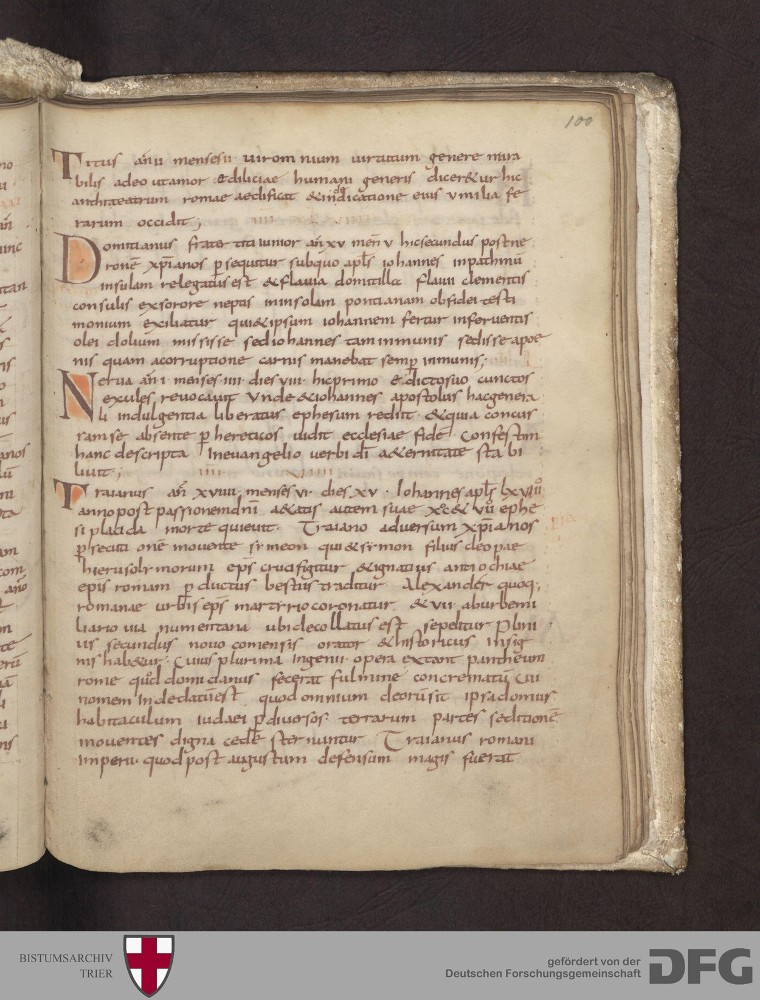 100
Titus añ ii menses ii uirom nium uirtutum genere mira
bilis adeo utamor &diliciae humani generis dicer&ur hic
anphiteatrum romae aedificat &indedicatione eius v milia fe
rarum occidit;
Domitianus frater titi iunior añ xv men v hicsecundus postne
ronē xp̄ianos p̱sequitur subquo apl̄s iohannes inpathmū
insulam relegatus est &flauia domitilla flauii clementis
consulis exsorore neptis ininsolam pontianam obfidei testi
monium exiliatur qui&ipsum iohannem fertur inferuentis
olei dolium misisse sediohannes tam inmunis sedisse apoe
nis quam acorruptione carnis manebat semp̱ inmunis;
Nerua añ i menses iiii dies viii hicprimo edictosuo cunctos
exules reuocauit Vnde &iohannes apostolus hacgenera
li indulgentia liberatus ephesum rediit &quia concus
ramse absente p̱ hereticos uidit ecclesiae fidē Confestim
hanc descripta Ineuangelio uerbi dī a&ernitate sta bi
liuit;
Traianus añ xviiii menses vi dies xv Iohannes apl̄s lxviii
anno post passionem dn̄i a&atis autem suae ephe
si placida morte quieuit Traiano aduersum xp̄ianos
p̱secuti onē mouente simeon qui&simon filius cleopae
hierusolimorum ep̄s crucifigitur &ignatius antiochiae
ep̄is romam p̱ductus bestiis traditur Alexander quoq;
romanae urbis ep̄s martirio coronatur &vii aburbemi
liario uia numentana ubidecollatus est sepelitur Plini
us secundus nouo comensis orator &historicus Insig
nis hab&ur Cuius plurima ingenii opera extant pantheum
rome quod domicianus fecerat fulmine concrematū Cui
nomen Indedatū est quod omnium deorū sit ipsa domus
habitaculum iudaei p̱diuersos terrarum partes seditionē
mouentes digna cedē sternuntur Traianus romani
Imperii quod post augustum defensum magis fuerat
BISTUMSARCHIV
TRIER
gefördert von der
Deutschen Forschungsgemeinschaft
DFG